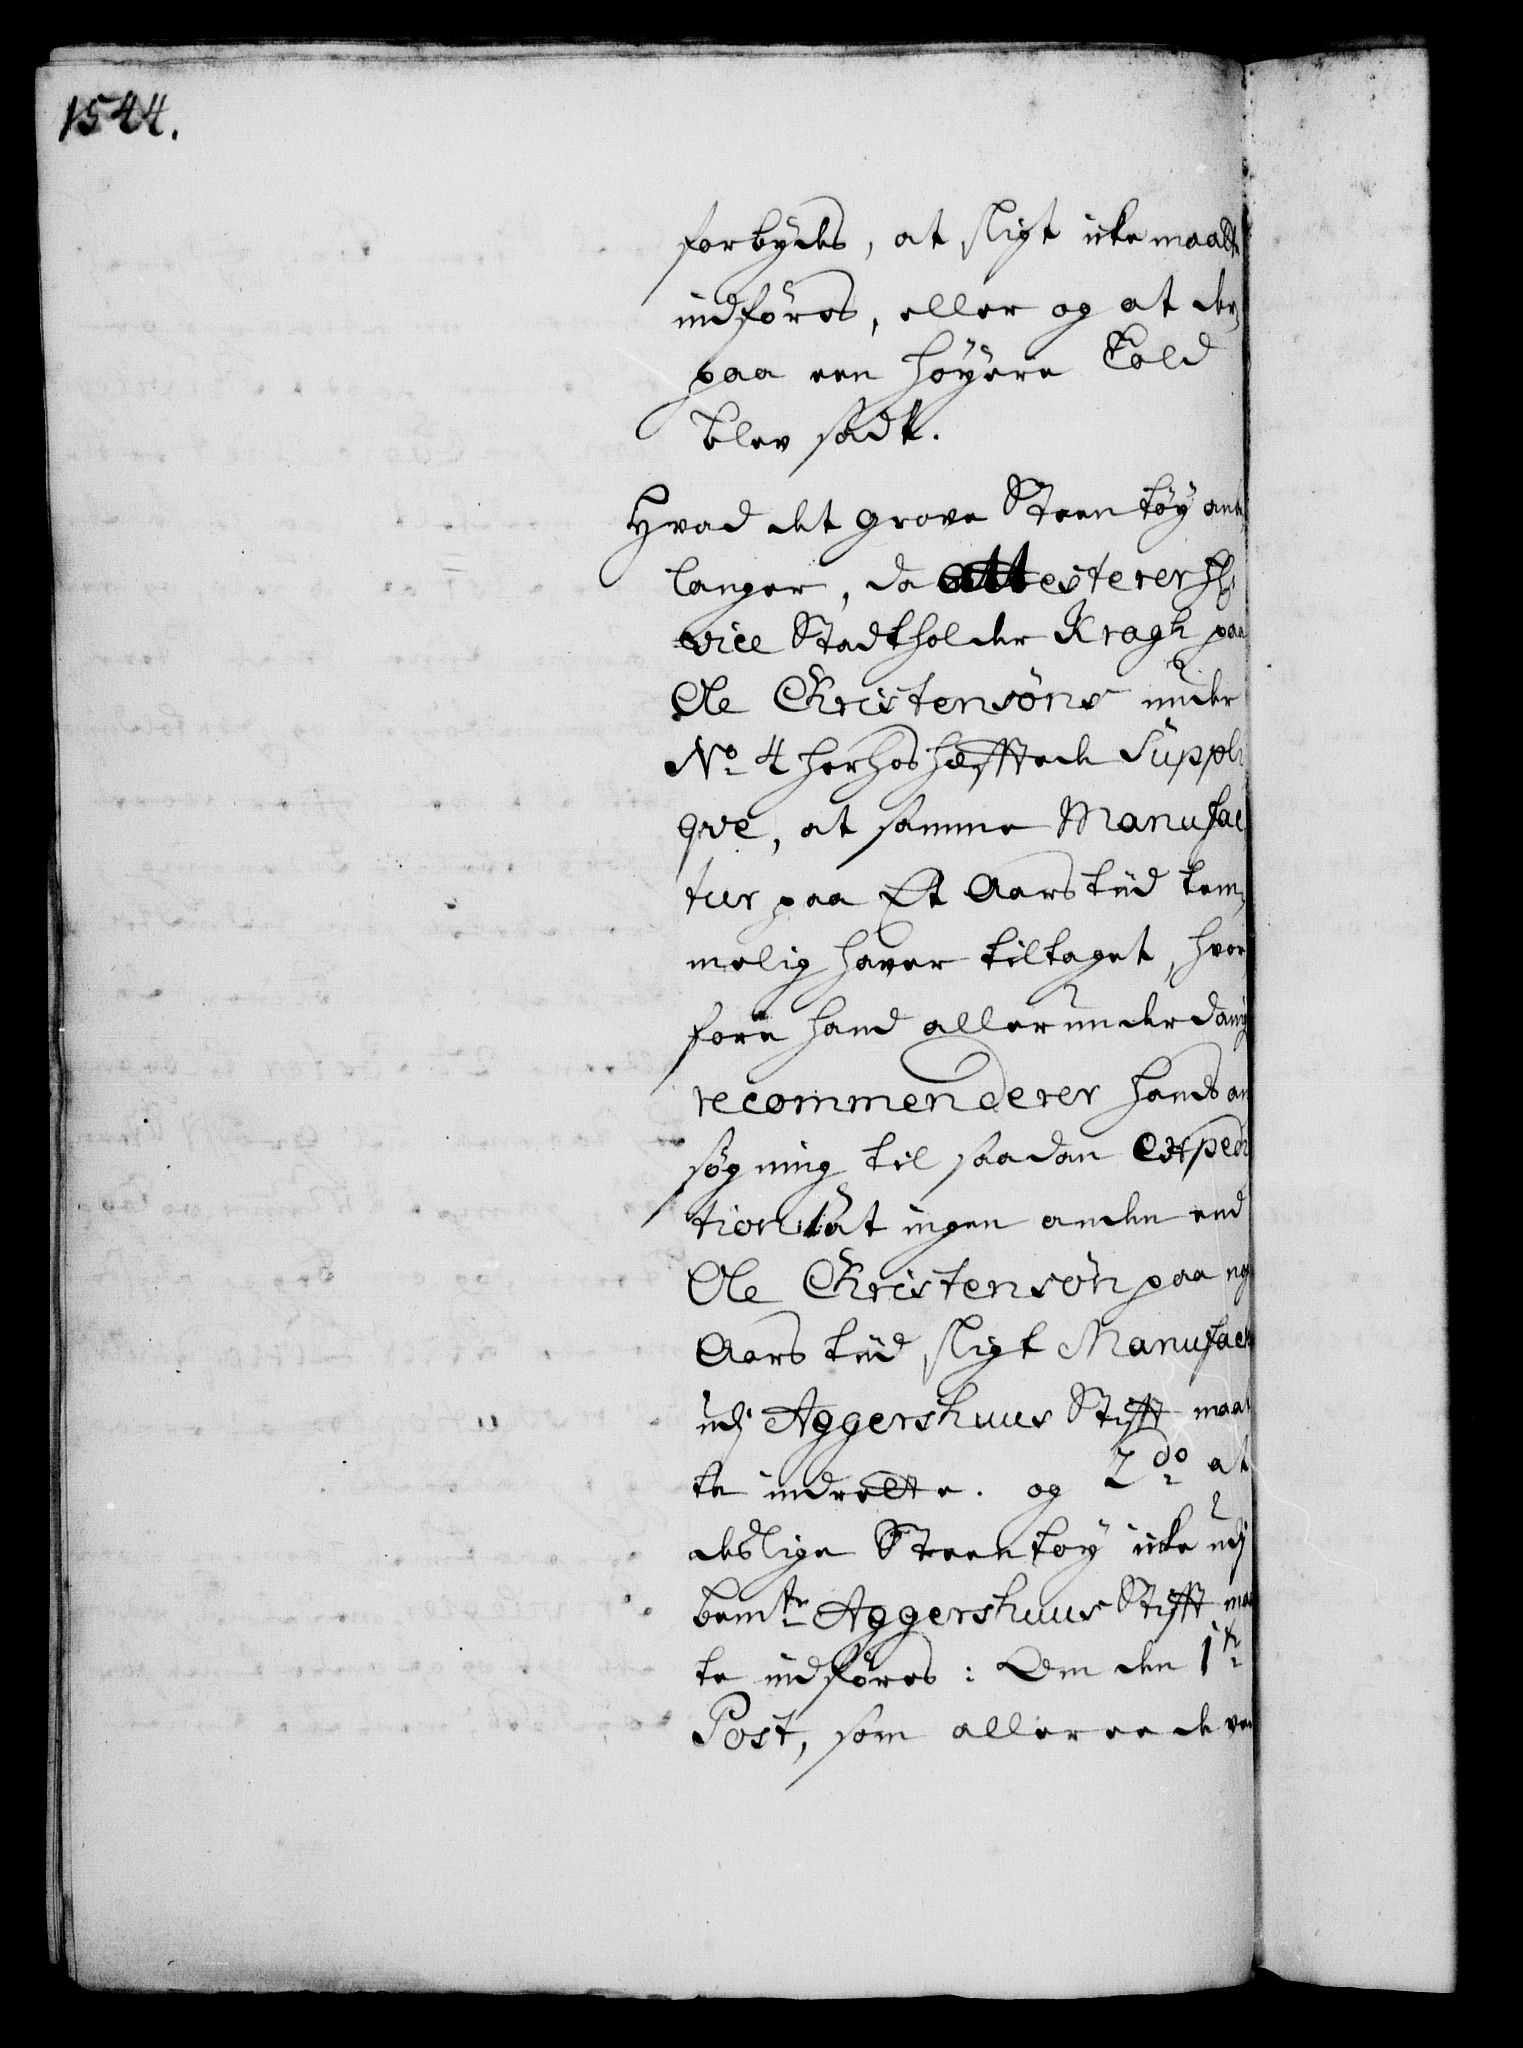 1544.
forbydes, at sligt icke maatte
indføres, eller og at der,
paa een høyere Told
blev sadt.
Hvad det grove Steentøy an¬
langer, da attesterer H:
vice Stadtholder Kragh paa
Ole Christensöns under
No 4 herhos hæfftede Suppli
qve, at samme Manufac
tur paa Et Aars tiid tem,
melig haver tiltaget, hvor
fore hand allerunderdanig
recommenderer hands an
søgning til saadan expedi
tion 1 at ingen anden end
Ole Christensön paa
Aars tiid sligt Manufact
udj Aggershuus Stifft maat
te indrette. og 2do at
deslige Steentøy icke udj
bemte Aggershuus Stifft maa
te indføres: Om den 1te
Post, som allereede